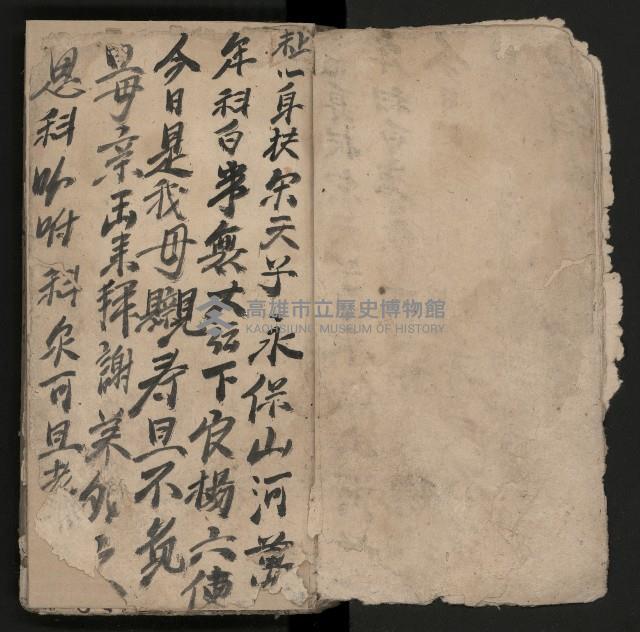 赤心身扶宋天子永保山河萬
年科白事無大小下官楊六使
今日是我母親壽旦不免
母亲出来拜謝
恩科吩咐科衆可且
高雄市立歷史博物館
KAOHSIUNG MUSEUM OF HISTORY